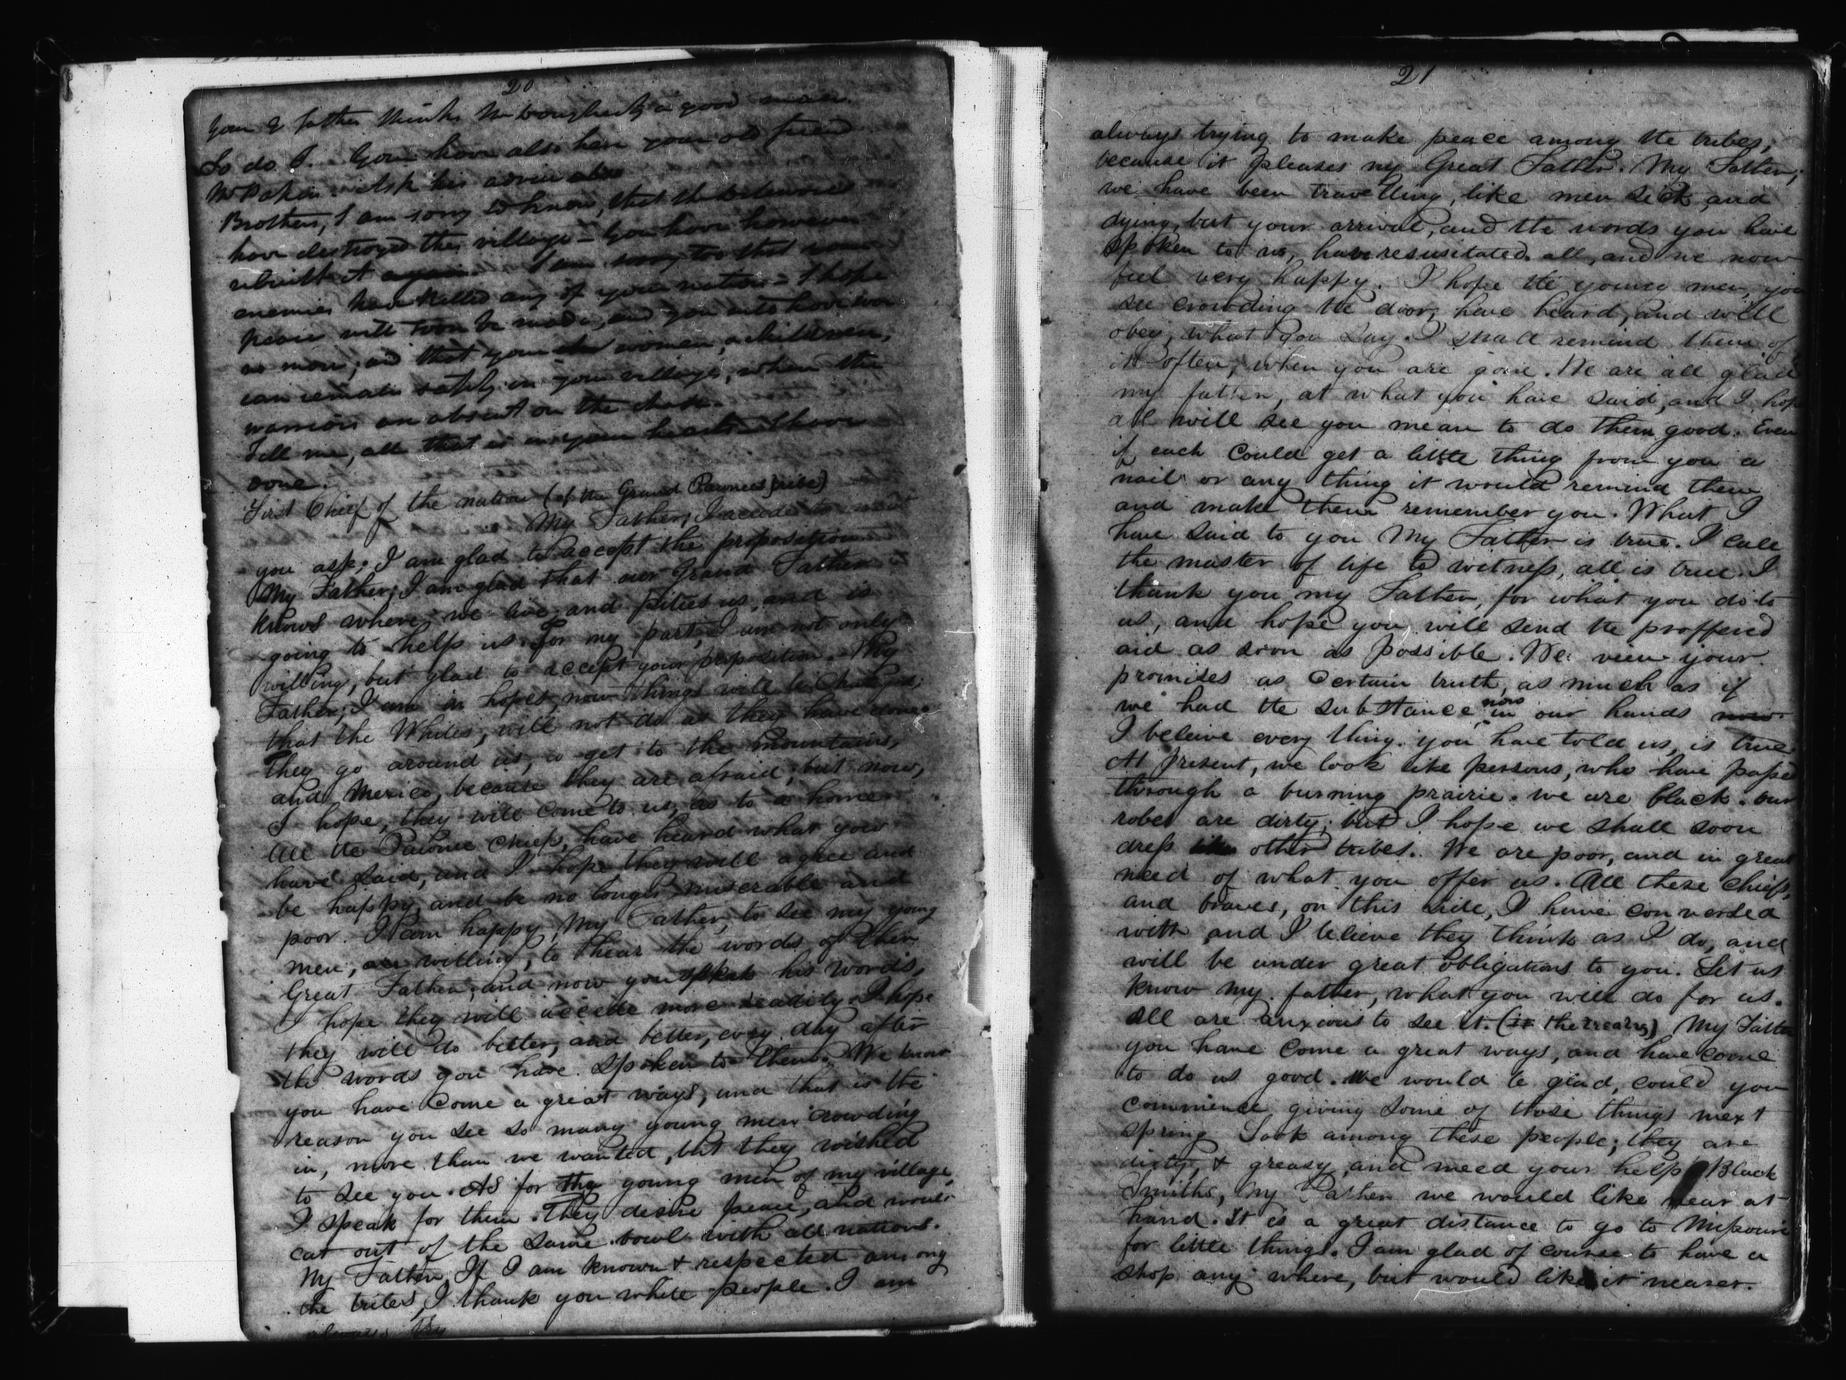 20
Your G father thinks Mr Dougherty a good man.
So do I. You have also here your old friend
Mr Papin. Ask his advice also
Brothers, I am sorry to know, that the Delawares
have destroyed this village - You have however
rebuilt it again. I am sorry too that your
enemies have killed any of your nation - I hope
peace will soon be made, and you will have war
no more, and that your women, & children,
can remain safely in your village, when the
warriors are absent on the chase.
Tell me, all that is in your hearts - I have
done.
First Chief of the nation (of the Grand Pawnees tribe)
My Father; I accede to what
you ask. I am glad to accept the proposition
My Father; I am glad that our Grand Father
knows where we live, and pities us, and is
going to help us. For my part, I am not only
willing, but glad to accept your proposition. My
Father; I am in hopes, now things will be changed;
that the Whites, will not do as they have done.
They go around us, to get to the mountains,
and Mexico, because they are afraid; but now,
I hope, they will come to us, as to a home.
All the Pawnee chiefs, have heard what you
have said, and I hope they will agree and
be happy and be no longer miserable and
poor. I am happy, My Father, to see my young
men, are willing, to hear the words of their
Great Father, and now you speak his words,
I hope they will accede more readily. I hope
they will do better, and better, every day after
the words you have spoken to them. We know
you have come a great ways, and that is the
reason you see so many young men crowding
in, more than we wanted, but they wished
to see you. As for the young men of my village,
I speak for them. They desire peace, and would
eat out of the same bowl with all nations.
My Father, If I am known & respected among
the tribes, I thank you white people. I am
always try
21
always trying to make peace among the tribes,
because it pleases my Great Father. My Father;
we have been travelling, like men sick, and
dying, but your arrival, and the words you have
spoken to us, have resusitated all, and we now
feel very happy. I hope the young men, you
see crowding the door, have heard, and will
obey, what you say. I shall remind them of
it often, when you are gone. We are all glad
my father, at what you have said, and I hope
all will see you mean to do them good. Even
if each could get a little thing from you a
nail or any thing it would remind them
and make them remember you. What I
have said to you My Father is true. I call
the master of life to witness, all is true. I
thank you my Father, for what you do to
us, and hope you will send the proffered
aid as soon as possible. We view your
promises as certain truth, as much as if
we had the substance now in our hands now
I beleive every thing you have told us, is true
At present, we look like persons, who have passed
through a burning prairie. we are black. our
robes are dirty; but I hope we shall soon
dress like other tribes. We are poor, and in great
need of what you offer us. All these chiefs,
and braves, on this side, I have conversed
with and I beleive they think as I do, and
will be under great obligations to you. Let us
know my father, what you will do for us.
All are anxious to see it. (the treaty) My Father
you have come a great ways, and have come
to do us good. We would be glad, could you
commence giving some of those things next
spring. Look among these people; they are
dirty, & greasy and need your help. Black
Smiths, My Father we would like near at
hand. It is a great distance to go to Missouri
for little things. I am glad of course to have a
shop any where, but would like it nearer.